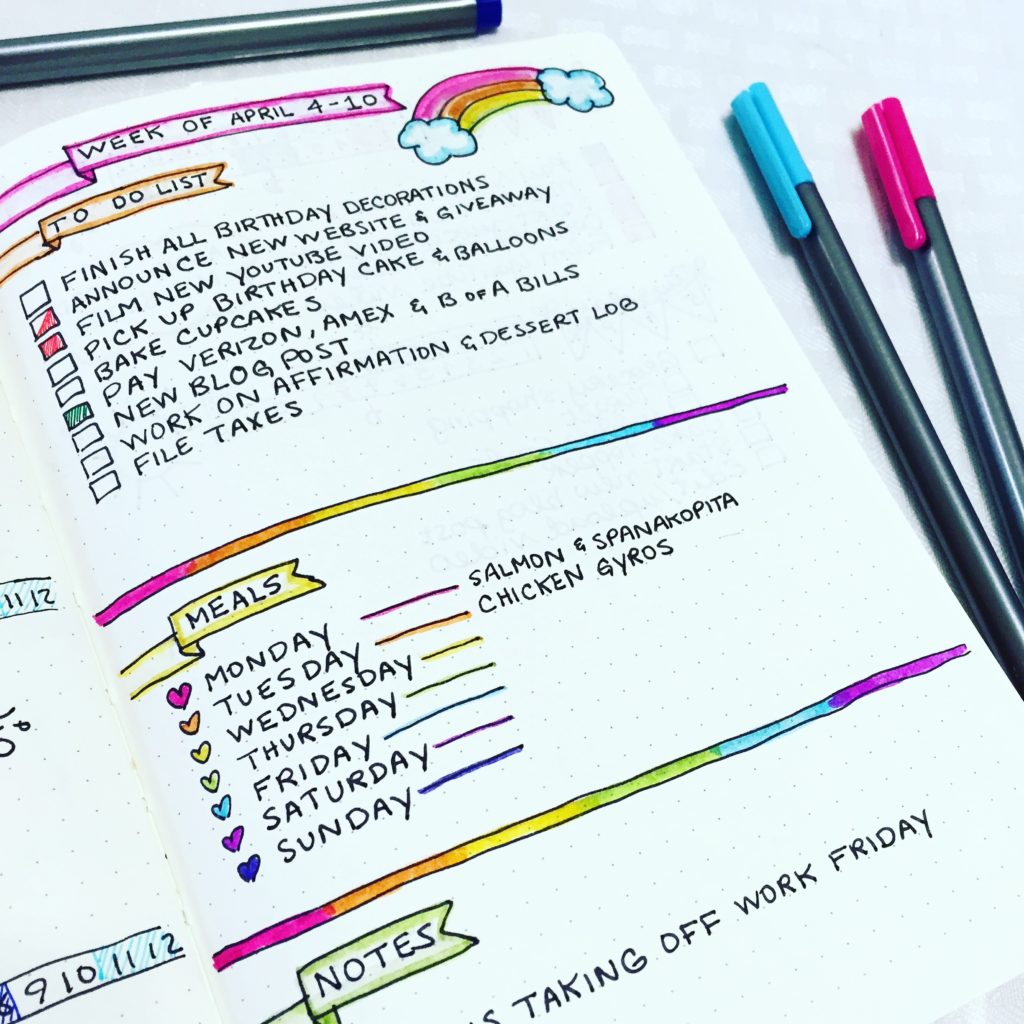 WEEK OF APRIL 4-10
TO DO LIST
FINISH ALL BIRTHDAY DECORATIONS
ANNOUNCE NEW WEBSITE & GIVEAWAY
FILM NEW YOUTUBE VIDEO
PICK UP BIRTHDAY CAKE & BALLOONS
BAKE CUPCAKES
PAY VERIZON, AMEX & B OF A BILLS
NEW BLOG POST
WORK ON AFFIRMATION & DESSERT LOG
FILE TAXES
MEALS
MONDAY SALMON & SPANAKOPITA
TUESDAY CHICKEN GYROS
WEDNESDAY
THURSDAY
FRIDAY
SATURDAY
SUNDAY
NOTES
TAKING OFF WORK FRIDAY
11 12
9 10 11 12